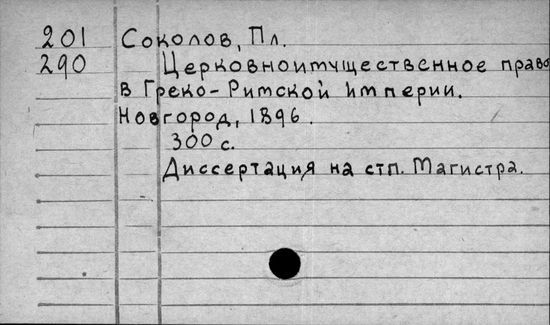 201 Соколов, Пл.
290 Церковноимущественное право
в Греко-Римской Империи.
Новгород, 1896.
300 с.
Диссертация на стп. Магистра.